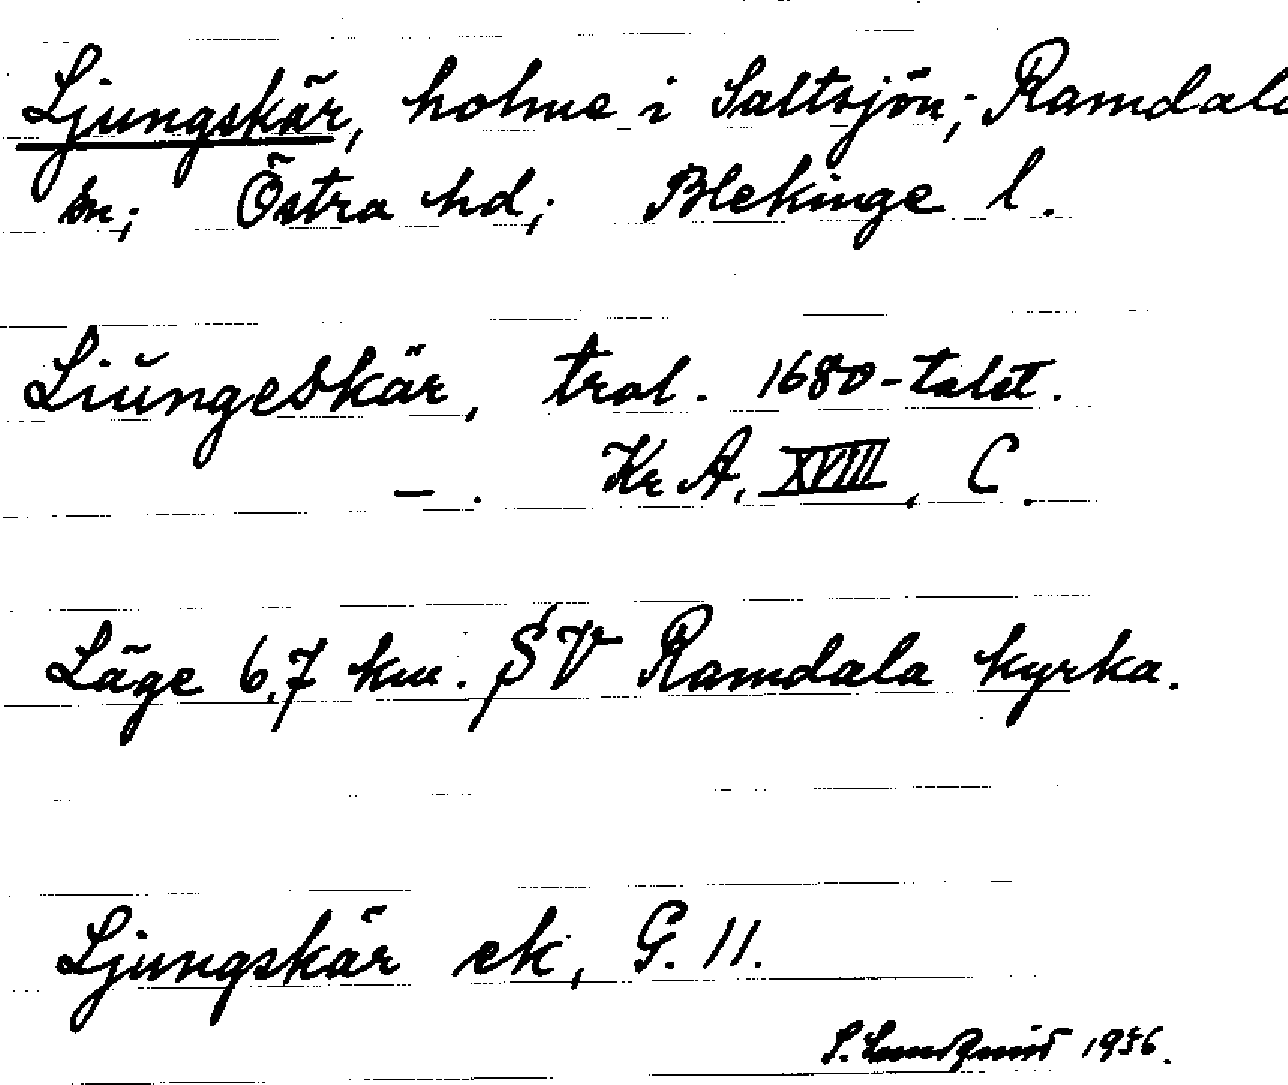 Ljungskär, holme i Saltsjön; Ramdala
sn; Östra hd; Blekinge l.
Liŭngeskär, trol. 1680-talet.
–. Kr A, XVIII, C.
Läge 6,7 km. SV Ramdala kyrka.
Ljungskär ek, G. 11.
S. Lundquist 1936.